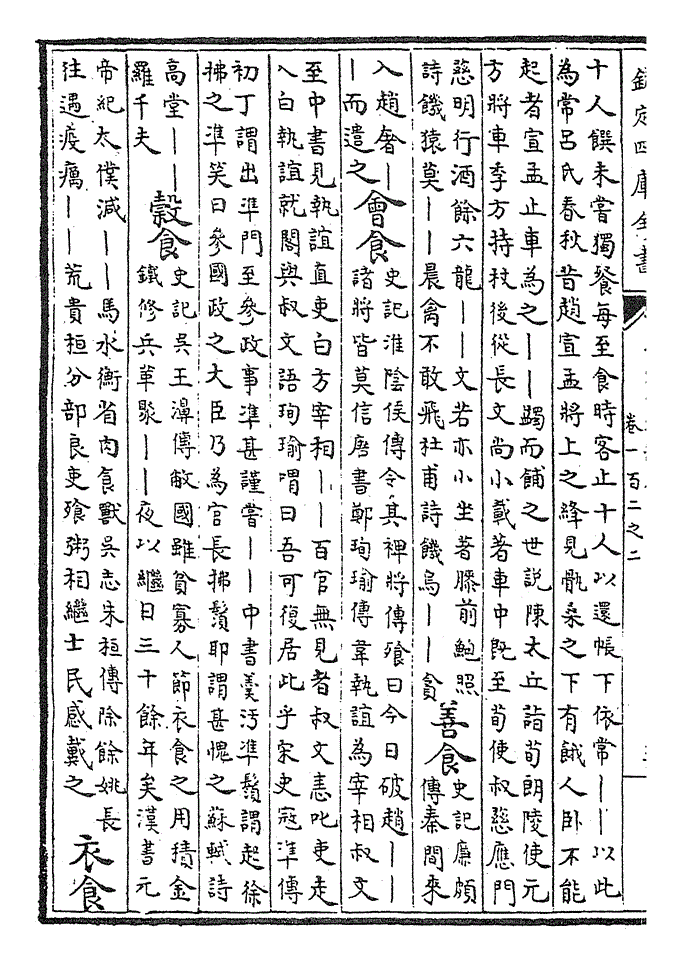 欽定四庫全書
卷一百二之二
十人饌未嘗獨餐每至食時客止十人以還帳下依常丨丨以此
為常呂氏春秋昔趙宣孟將上之絳見骩桑之下有餓人卧不能
起者宣孟止車為之丨丨蠲而餔之世說陳太丘詣荀朗陵使元
方將車季方持杖後從長文尚小載著車中既至荀使叔慈應門
慈明行酒餘六龍丨丨文若亦小坐著膝前鮑照
詩饑猿莫丨丨晨禽不敢飛杜甫詩饑烏丨丨貪
善食
史記廉頗
傳秦間來
入趙奢丨
丨而遣之
會食
史記淮陰侯傳令其裨將傳飱曰今日破趙丨丨
諸將皆莫信唐書鄭珣瑜傳韋執誼為宰相叔文
至中書見執誼直吏白方宰相丨丨百官無見者叔文恚叱吏走
入白執誼就閣與叔文語珣瑜喟曰吾可復居此乎宋史寇準傳
初丁謂出準門至參政事準甚謹嘗丨丨中書羹汚準鬚謂起徐
拂之準笑曰參國政之大臣乃為官長拂鬚耶謂甚愧之蘇軾詩
高堂丨丨
羅千夫
穀食
史記吳王濞傳敝國雖貧寡人節衣食之用積金
鐵修兵革聚丨丨夜以繼日三十餘年矣漢書元
帝紀太僕減丨丨馬水衡省肉食獸吳志朱桓傳除餘姚長
往遇疫癘丨丨荒貴桓分部良吏飱粥相繼士民感戴之
衣食